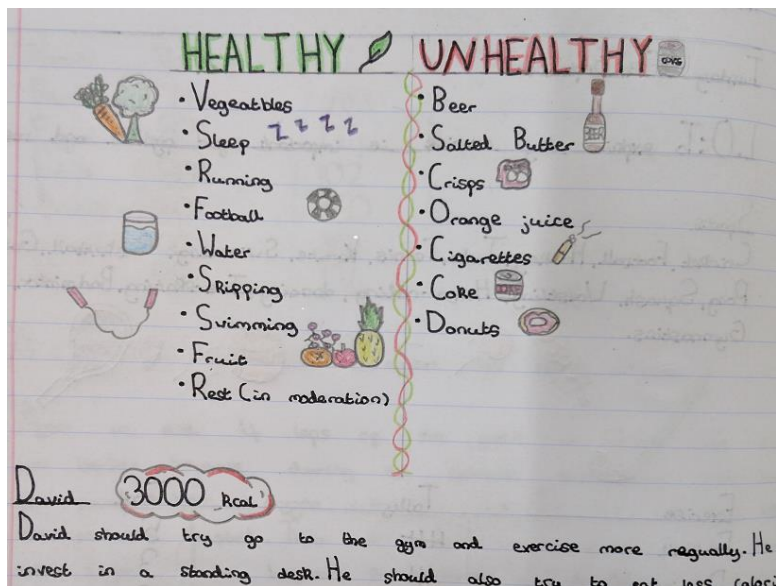 HEALTHY
UNHEALTHY
• Vegeatbles
• Sleep z z z z
• Running
• Football
• Water
• Skipping
• Swimming
• Fruit
• Rest (in moderation)
• Beer
BEER
• Salted Butter
• Crisps
• Orange juice
• Cigarettes
• Coke
• Donuts
David 3000 kcal
David should try go to the gym and exercise more regually. He
invest in a standing desk. He should also try to eat less